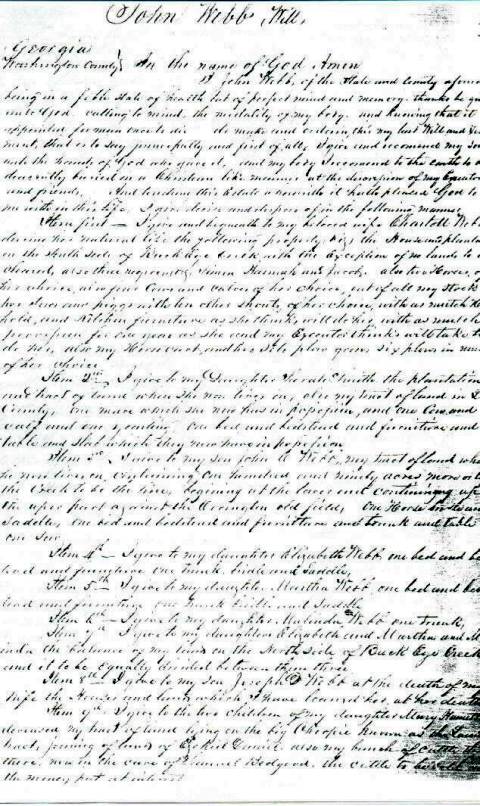 John Webb, Will,
Georgia
Washington County } In the name of God Amen
I John Webb, of the State and County aforesa
being in a feble state of health but of perfect mind and memory, thanks be gi
unto God calling to mind, the mortality of my body, and knowing that it
appointed for man once to die do make and ordain, this my last Will and Tes
ment, that is to say principally and first of all, I give and recommend my so
unto the hands of God who gave it, and my body I recommend to the earth to b
decently buried in a Christian like manner at the discretion of my Executor
and friends, And touching this Estate wherewith it hath pleased God to
me with in this life, I give devise and dispose of in the following manner
Item first — I give and bequeath to my beloved wife Charlott Webb
during her natural life the following property, viz, the House and planta
on the South side of Buck Eye Creek, with the exception of no lands to
cleared, also three negroes Hannah and Jacob, also two Horses, of
her choice, also four Cows and calves of her choice, out of all my stock
her Sows and piggs with ten other shoats, of her choice, with as much
hold, and Kitchen furniture as she thinks will do her, with as much
provision for one year as she and my Executor thinks will take to
do her, also my Horse cart, and her
of her choice.
Item 2nd — I give to my Daughter Sarah Smith the plantation
and tract of land where she now lives on, also my tract of land in
County, One mare which she now has in possession, and one Cow and
calf and one yearling One bed and bedstead and furniture and
table and which they now have in possession
Item 3d — I give to my son John Webb, my tract of land whe
he now lives on, containing One hundred and ninety acres more or
the Creek to be the line, begening at the lower end continuing up
the upper part against the old field, One Horse
Saddle, One bed and bedstead and furniture and trunk and table
one Sow,
Item 4th — I give to my daughter Elizabeth Webb one bed and be
stead and furniture One trunk, bridle and Saddle,
Item 5th — I give to my daughter Martha Webb, one bed and bed
stead and furniture one trunk bridle and Saddle
Item 6th — I give to my daughter Malinda Webb one trunk,
Item 7th I give to my daughters Elizabeth and Martha and M
inda the balance of my land on the North side of Buck Eye Creek
and it to be equally devided between them three
Item 8th — I give to my son Joseph Webb at the death of my
wife the House and land which I have loaned her, at her death
Item 9th — I give to the two children of my daughter Mary
deceased my tract of land lying on the big Ohoopie known as the
tract, joining of lands of Daniel also my bunch of cattle th
there, now in the care of the cattle to be sold an
the money put at interest